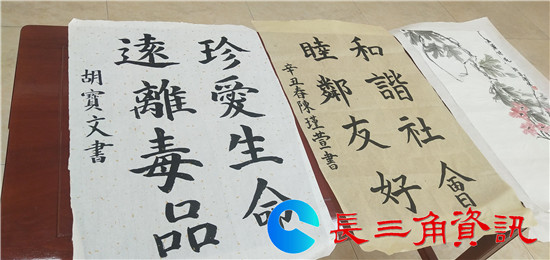 珍愛生命
遠離毒品
胡寶文書
和諧社會
睦鄰友好
辛丑春陳瑾萱書
長三角資訊